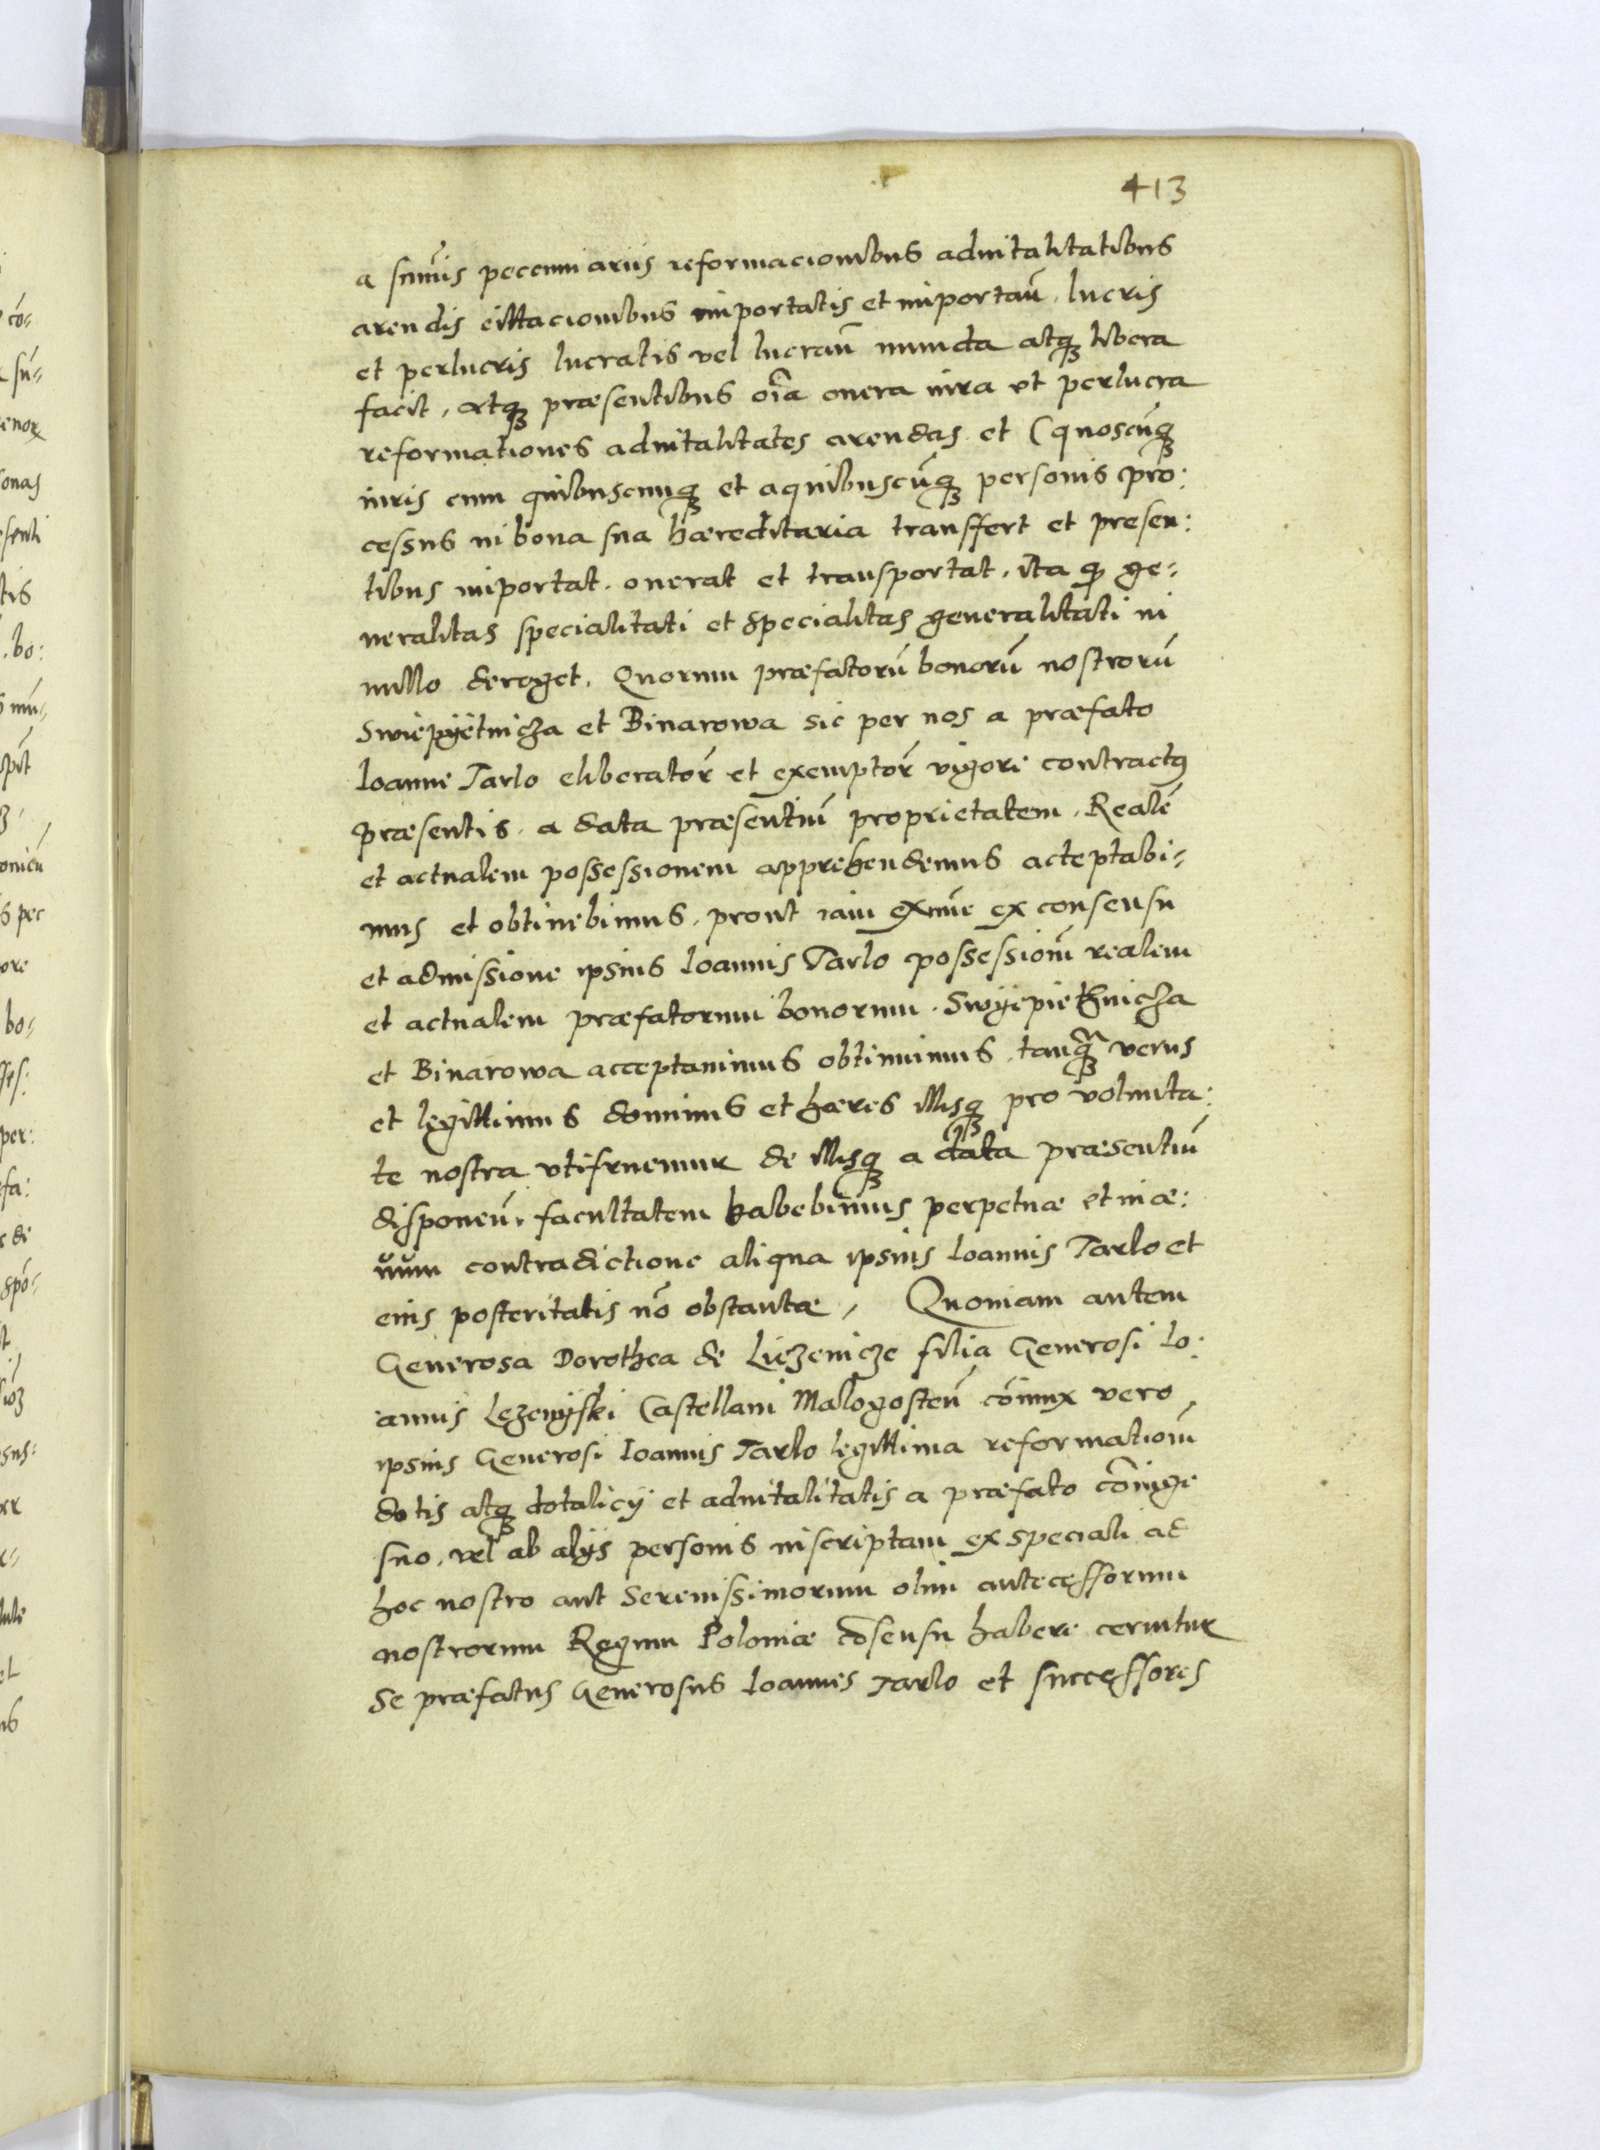 413
a sum̄is pecuniariis reformacionibus aduitalitatibus
arendis cittacionibus importatis et importañ. lucris
et perlucris lucratis vel lucrañ munda atqʒ libera
facit, atqʒ præsentibus oīa onera iura vt perlucra
reformationes aduitalitates arendas et (quoscūqʒ
iuris cum quibuscunqʒ et aquibuscūqʒ personis pro:
cessus in bona sua hæreditaria transffert et presen:
tibus importat. onerat et transportat. ita qͦ ge-
neralitas specialitati et specialitas generalitati in
nullo deroget. Quorum præfatorū bonorū nostrorū
Swiepyetnicza et Binarowa sic per nos a præfato
Ioanne Tarlo eliberator̄ et exemptor̄ vigore contractꝰ
præsentis. a data præsentiū proprietatem. Realē
et actualem possessionem apprehendemus acteptabi-
mus et obtinebimus. prout iam exnūc ex consensu
et admissione ipsius Ioannis Tarlo possessionē realem
et actualem præfatorum bonorum. Swyepiethnicza
et Binarowa acceptauimus obtinuimus. tanqʒ̄ verus
et legittimus dominus et hæres illisqʒ pro volunta:
te nostra vtifruemur de illisqʒ a data præsentiū
disponeñ. facultatem habebimus perpetuæ et in æ:
uum contradictione aliqua ipsius Ioannis Tarlo et
eius posteritatis nō obstantæ, Quoniam autem
Generosa Dorothea de Liezenicze filia Generosi Io:
annis Lezenyski Castellani Malogosteñ cōiunx vero
ipsius Generosi Ioannis Tarlo legittima reformationē
dotis atqʒ dotalicÿ et aduitalitatis a præfato cōiuge
suo. vel ab alÿs personis inscriptam ex speciali ad
hoc nostro aut Serenissimorum olim antecessorum
nostrorum Regum Poloniæ cōsensu habere cernitur
Se præfatus Generosus Ioannes Tarlo et successores